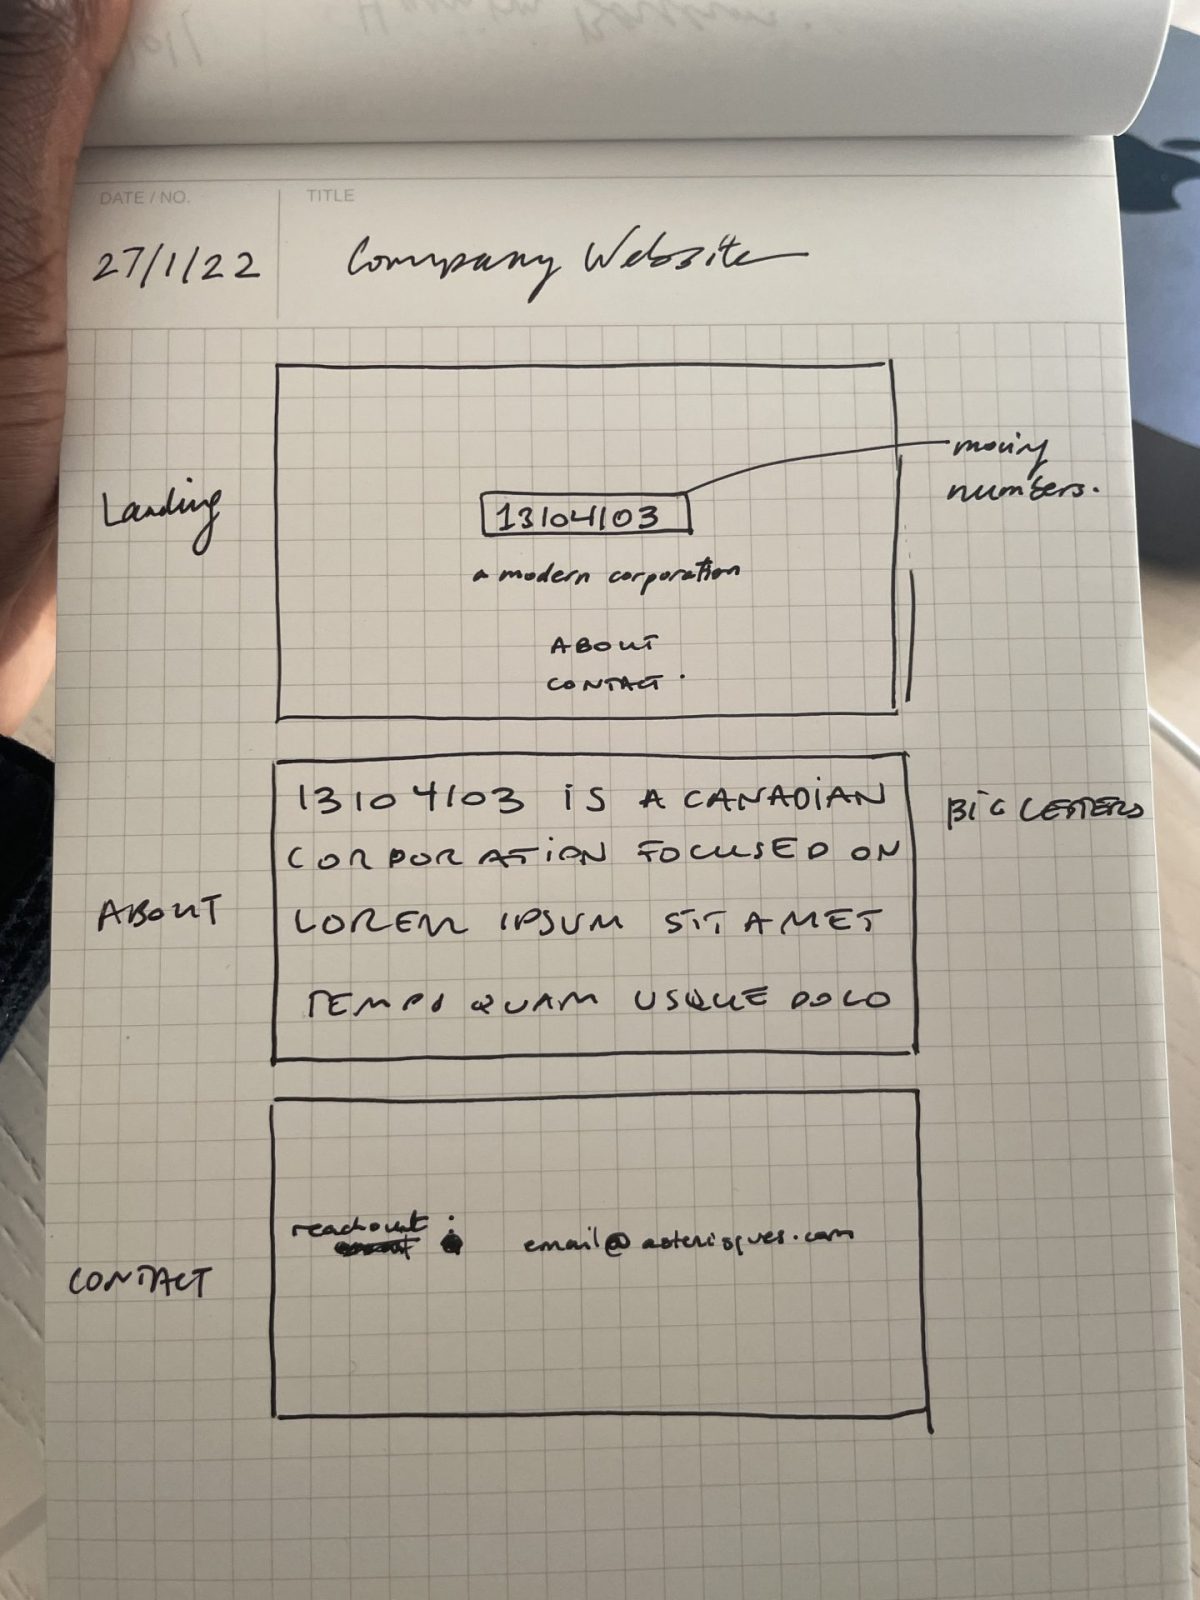 DATE / NO.
TITLE
27/1/22
Company Website
Landing
13104103
moving
numbers.
a modern corporation
ABOUT
CONTACT.
ABOUT
13104103 IS A CANADIAN
CORPORATION FOCUSED ON
LOREM IPSUM SIT AMET
TEMPO QUAM USQUE DOLO
BIG LETTERS
CONTACT
reachout :
email@asterisques.com